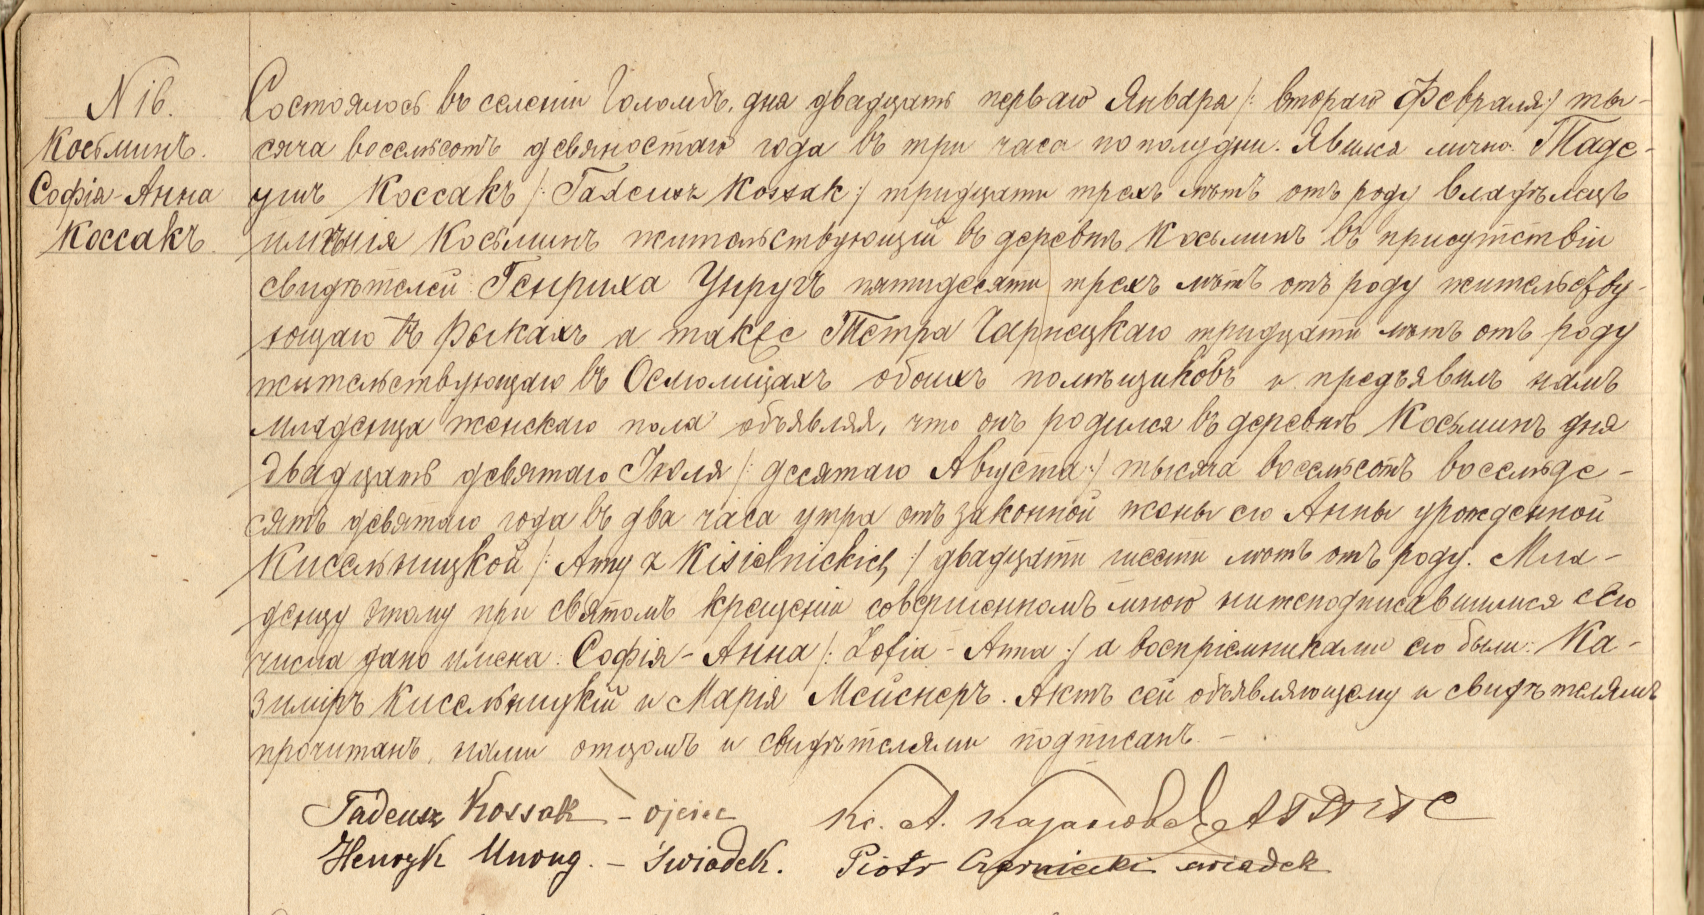 N 16.
Косьминъ.
Софія-Анна
Коссакъ.
Состоялось въ селеніи Голомбъ, дня двадцать перваго Января /: втораго Февраля :/ ты-
сяча восемьсотъ девяностаго года въ три часа пополудни. Явился лично Таде-
ушъ Коссакъ /: Tadeusz Kossak :/ тридцати трехъ лѣтъ отъ роду владѣлецъ
имѣнія Косьминъ жительствующій въ деревнѣ Косьминъ въ присутствіи
свидѣтелей Генриха Унругъ пятидесяти трехъ лѣтъ отъ роду жительству-
ющаго въ Рыкахъ а также Петра Чарнецкаго тридцати лѣтъ отъ роду
жительствующаго въ Осмолицахъ обоихъ помѣщиковъ и предъявилъ намъ
младенца женскаго пола объявляя, что онъ родился въ деревнѣ Косьминъ дня
двадцать девятаго Іюля /: десятаго Августа :/ тысяча восемьсотъ восемьде-
сятъ девятаго года въ два часа утра отъ законной жены его Анны урожденной
Кисельницкой /: Anny z Kisielnickich :/ двадцати шести лѣтъ отъ роду. Мла-
денцу этому при святомъ крещеніи совершенномъ мною нижеподписавшимся сего
числа дано имена: Софія-Анна /: Zofia-Anna :/ а воспріемниками его были: Ка-
зиміръ Кисельницкій и Марія Мейснеръ. Актъ сей объявляющему и свидѣтелямъ
прочитанъ, нами отцомъ и свидѣтелями подписанъ. -
Tadeusz Kossak - ojciec
Кс. А.
Henryk Unrug. - Świadek.
Piotr Czarniecki swiadek